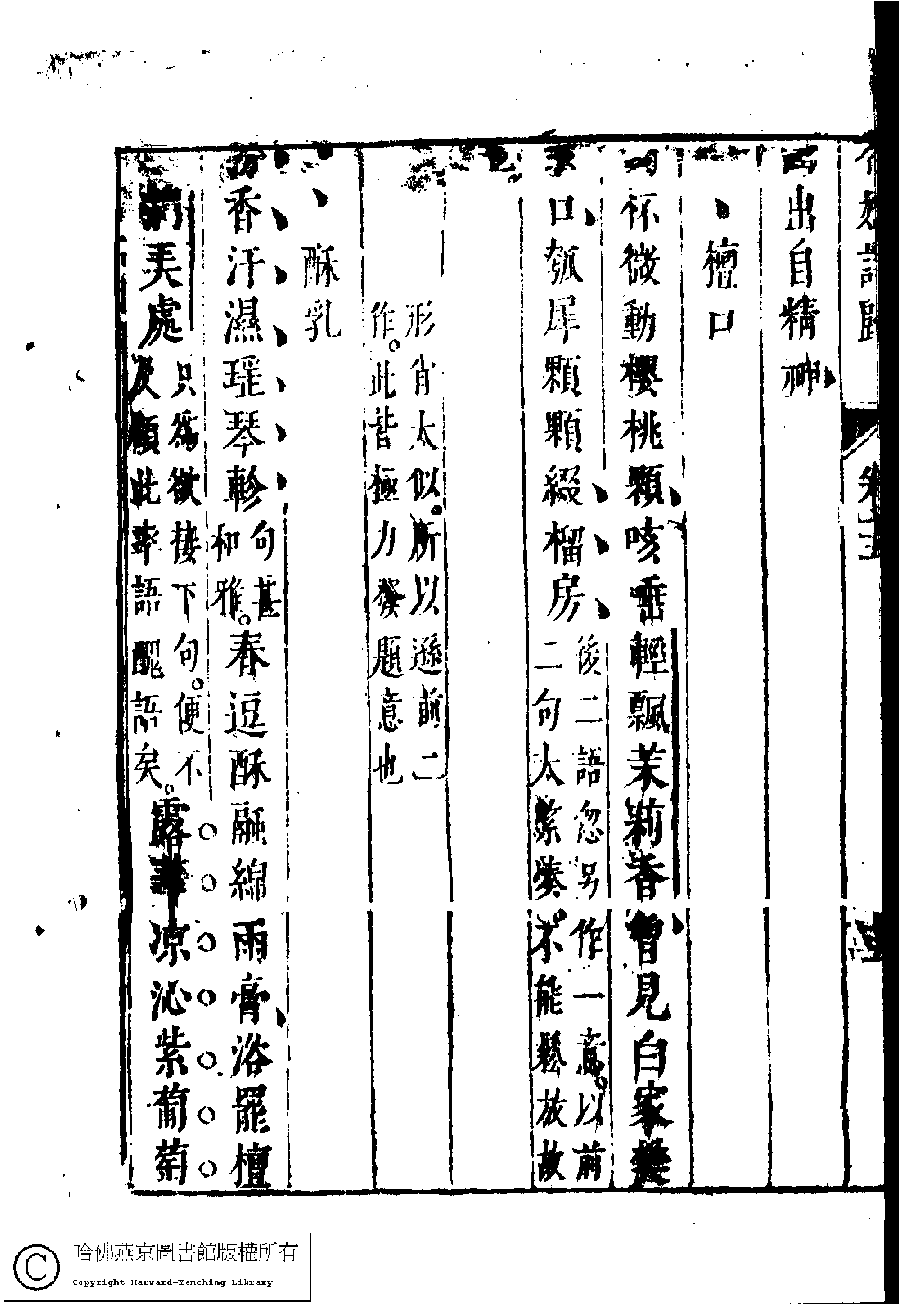 媛詩歸 卷
出自精神
檀口
杯微動櫻桃顆咳唾輕飄茉莉香曾見白家樊
素口瓠犀顆顆綴榴房
後二語忽另作一意。以前
二句太緊湊。不能鬆放故
形肖太似。所以遜前二
作。此皆極力發題意也
酥乳
粉香汗濕瑤琴軫
句甚
和雅。
春逗酥融綿雨膏浴罷檀
捫弄處
只為欲接下句。便不
及顧此率語醜語矣。
露華凉沁紫葡萄
哈佛燕京圖書館版權所有
Copyright Harvard-Yenching Library